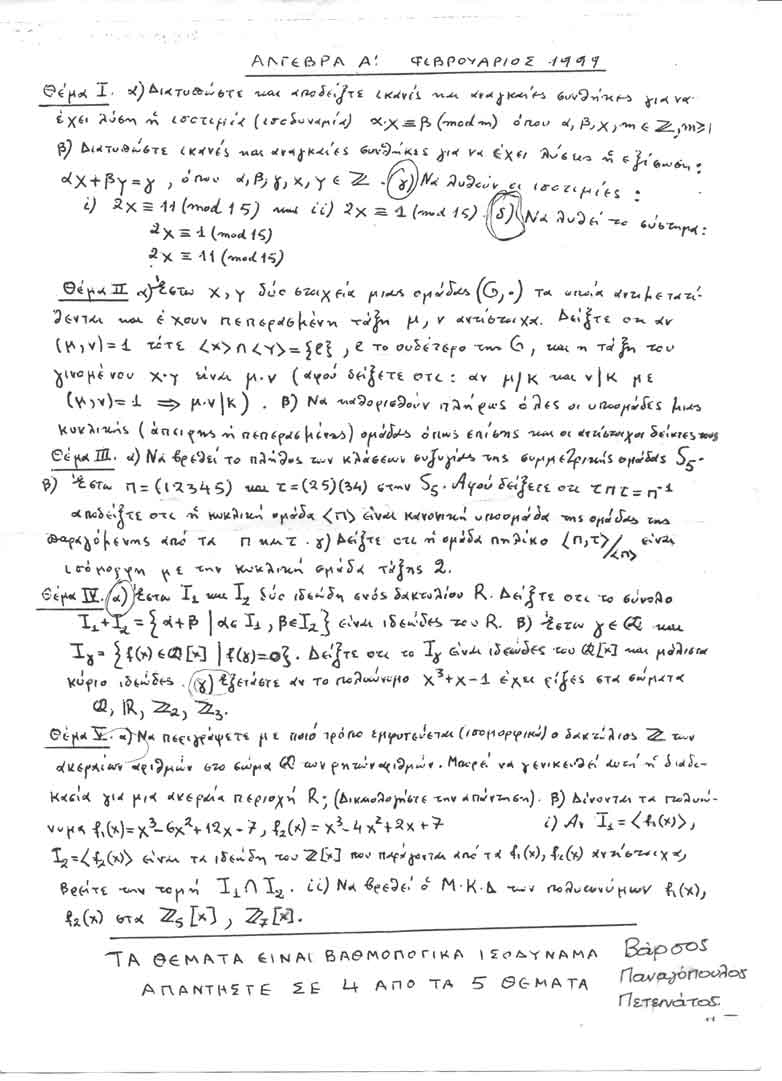 ΑΛΓΕΒΡΑ Α! ΦΕΒΡΟΥΑΡΙΟΣ 1999
Θέμα I. α) Διατυπώστε και αποδείξτε ικανές και αναγκαίες συνθήκες για να
έχει λύση ἡ ισοτιμία (ισοδυναμία) α·x ≡ β (mod m) όπου α, β, x, m ∈ ℤ, m≥1
β) Διατυπώστε ικανές και αναγκαίες συνθήκες για να έχει λύσεις ἡ εξίσωση:
αx + βy = γ , όπου α, β, γ, x, y ∈ ℤ. γ) Να λυθούν οι ισοτιμίες:
i) 2x ≡ 11 (mod 15) και ii) 2x ≡ 1 (mod 15). δ) Να λυθεί το σύστημα:
2x ≡ 1 (mod 15)
2x ≡ 11 (mod 15)
Θέμα II α) Ἔστω x, y δύο στοιχεία μιας ομάδας (G, ·) τα οποία αντιμετατί-
θενται και έχουν πεπερασμένη τάξη μ, ν αντίστοιχα. Δείξτε οτι αν
(μ, ν) = 1 τότε <x> ∩ <y> = {e}, e το ουδέτερο της G, και η τάξη του
γινομένου x·y είναι μ·ν (αφού δείξετε οτι: αν μ/κ και ν/κ με
(μ, ν) = 1 ⇒ μ·ν|κ). β) Να καθορισθούν πλήρως όλες οι υποομάδες μιας
κυκλικής (άπειρης ή πεπερασμένης) ομάδας όπως επίσης και οι αντίστοιχοι δείκτες τους
Θέμα III. α) Να βρεθεί το πλήθος των κλάσεων συζυγίας της συμμετρικής ομάδας S₅.
β) Ἔστω π = (12345) και τ = (25)(34) στην S₅. Αφού δείξετε οτι τπτ = π⁻¹
αποδείξτε οτι ἡ κυκλική ομάδα <π> είναι κανονική υποομάδα της ομάδας της
παραγόμενης από τα π και τ. γ) Δείξτε οτι ἡ ομάδα πηλίκο <π,τ>/<π> είναι
ισόμορφη με την κυκλική ομάδα τάξης 2.
Θέμα IV. α) Ἔστω I₁ και I₂ δύο ιδεώδη ενός δακτυλίου R. Δείξτε οτι το σύνολο
I₁+I₂ = {α+β | α∈I₁, β∈I₂} είναι ιδεώδες του R. β) Ἔστω γ ∈ ℚ και
Iγ = {f(x) ∈ ℚ[x] | f(γ)=0}. Δείξτε οτι το Iγ είναι ιδεώδες του ℚ[x] και μάλιστα
κύριο ιδεώδες. γ) Εξετάστε αν το πολυώνυμο x³+x-1 έχει ρίζες στα σώματα
ℚ, ℝ, ℤ₂, ℤ₃.
Θέμα V. α) Να περιγράψετε με ποιό τρόπο εμφυτεύεται (ισομορφικά) ο δακτύλιος ℤ των
ακεραίων αριθμών στο σώμα ℚ των ρητών αριθμών. Μπορεί να γενικευθεί αυτή ἡ διαδι-
κασία για μια ακεραία περιοχή R; (Δικαιολογήστε την απάντηση). β) Δίνονται τα πολυώ-
νυμα f₁(x) = x³-6x²+12x-7, f₂(x) = x³-4x²+2x+7 i) Αν I₁ = <f₁(x)>,
I₂ = <f₂(x)> είναι τα ιδεώδη του ℤ[x] που παράγονται από τα f₁(x), f₂(x) αντίστοιχα,
βρείτε την τομή I₁ ∩ I₂. ii) Να βρεθεί ὁ Μ.Κ.Δ των πολυωνύμων f₁(x),
f₂(x) στα ℤ₅[x], ℤ₇[x].
ΤΑ ΘΕΜΑΤΑ ΕΙΝΑΙ ΒΑΘΜΟΛΟΓΙΚΑ ΙΣΟΔΥΝΑΜΑ
ΑΠΑΝΤΗΣΤΕ ΣΕ 4 ΑΠΟ ΤΑ 5 ΘΕΜΑΤΑ
Βάρσος
Παναγόπουλος
Πετεινάτος